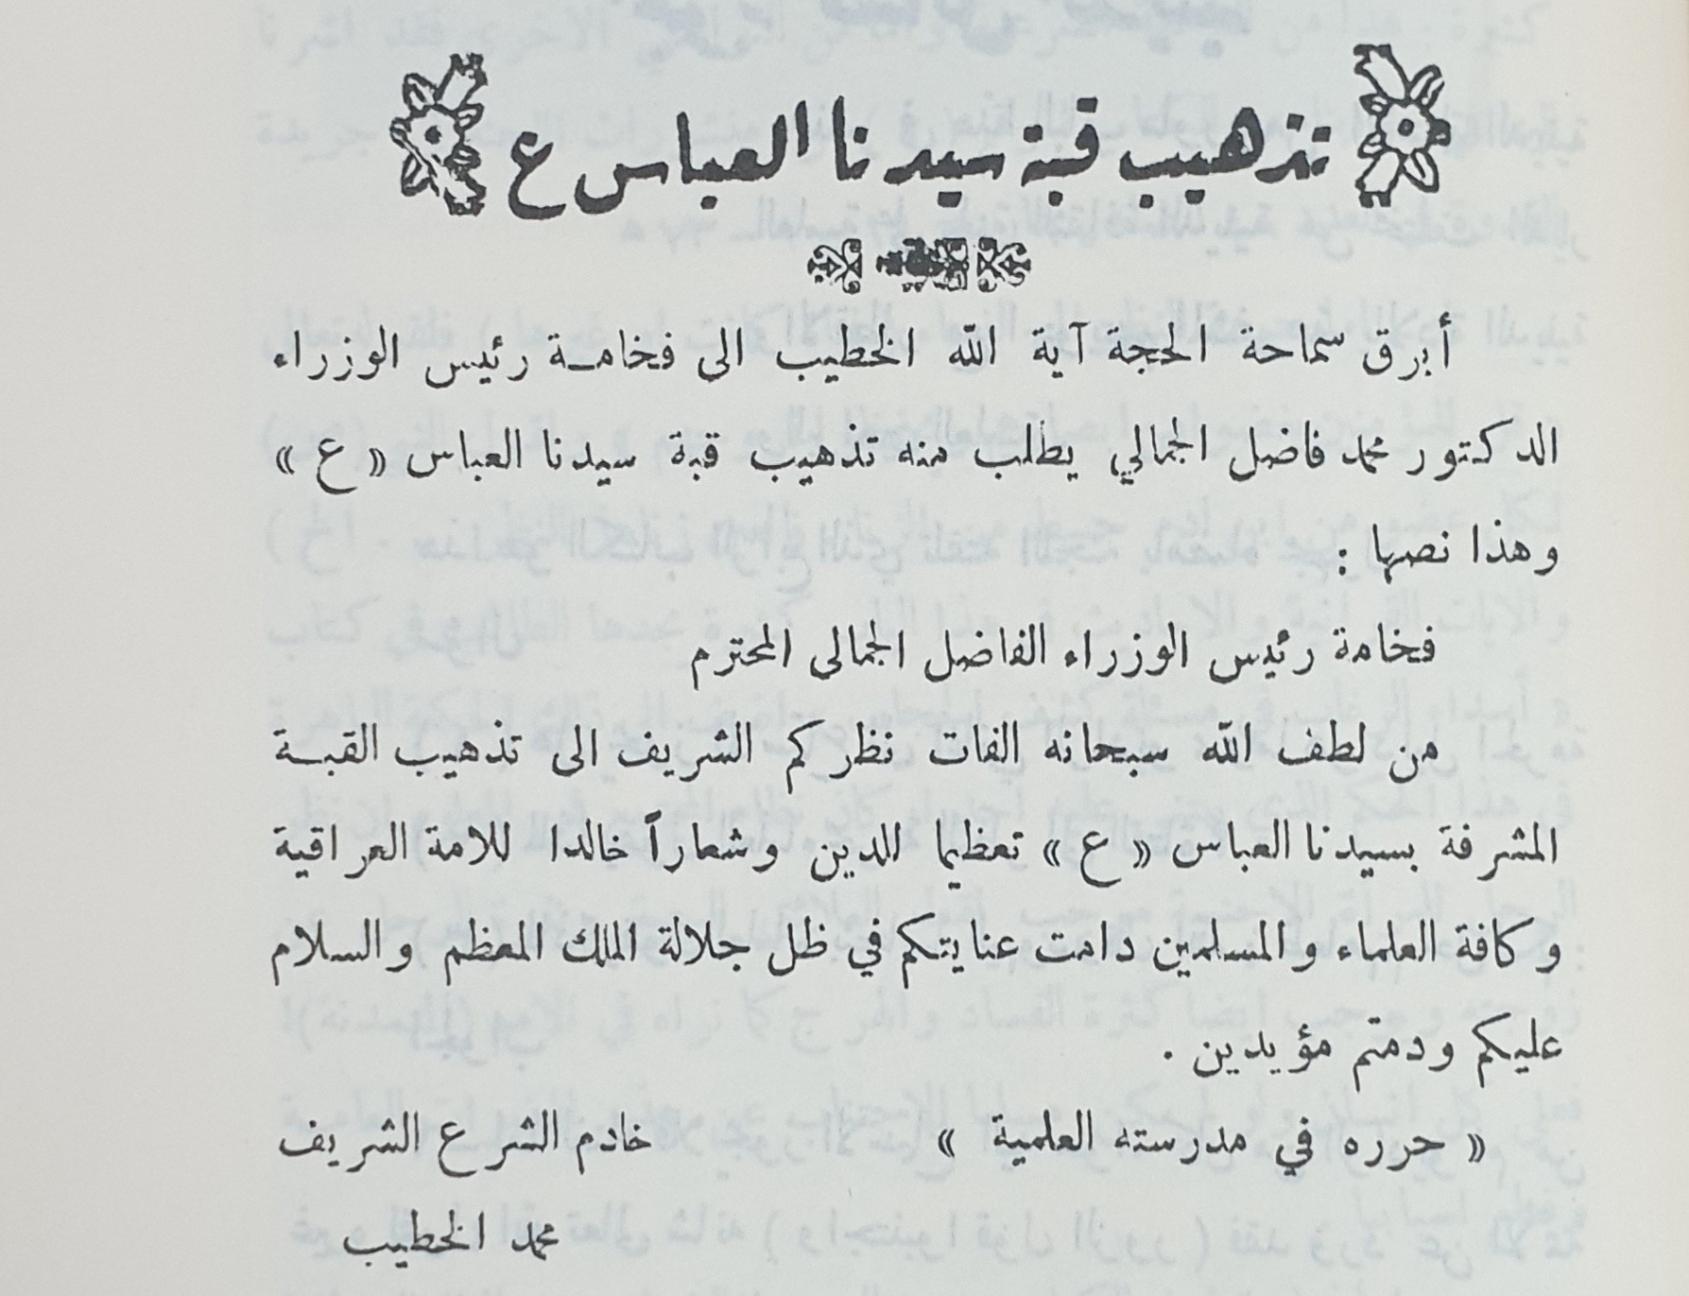 تذهيب قبة سيدنا العباس ع
أبرق سماحة الحجة آية الله الخطيب الى فخامة رئيس الوزراء
الدكتور محمد فاضل الجمالي يطلب منه تذهيب قبة سيدنا العباس « ع »
وهذا نصها :
فخامة رئيس الوزراء الفاضل الجمالى المحترم
من لطف الله سبحانه الفات نظركم الشريف الى تذهيب القبة
المشرفة بسيدنا العباس « ع » تعظيما للدين وشعاراً خالدا للامة العراقية
وكافة العلماء والمسلمين دامت عنايتكم في ظل جلالة الملك المعظم والسلام
عليكم ودمتم مؤيدين .
« حرره في مدرسته العلمية » خادم الشرع الشريف
محمد الخطيب